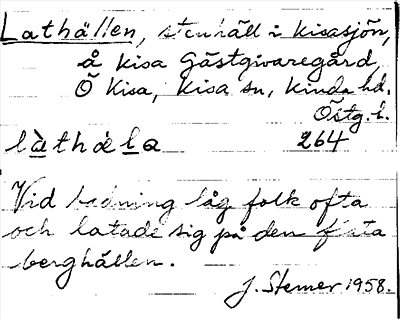 Lathällen, stenhäll i Kisasjön,
å Kisa Gästgivaregård,
Ö Kisa, Kisa sn, Kinda hd.
Östg.l.
làthǽla 264
Vid badning låg folk ofta
och latade sig på den flata
berghällen.
J. Sterner 1958.